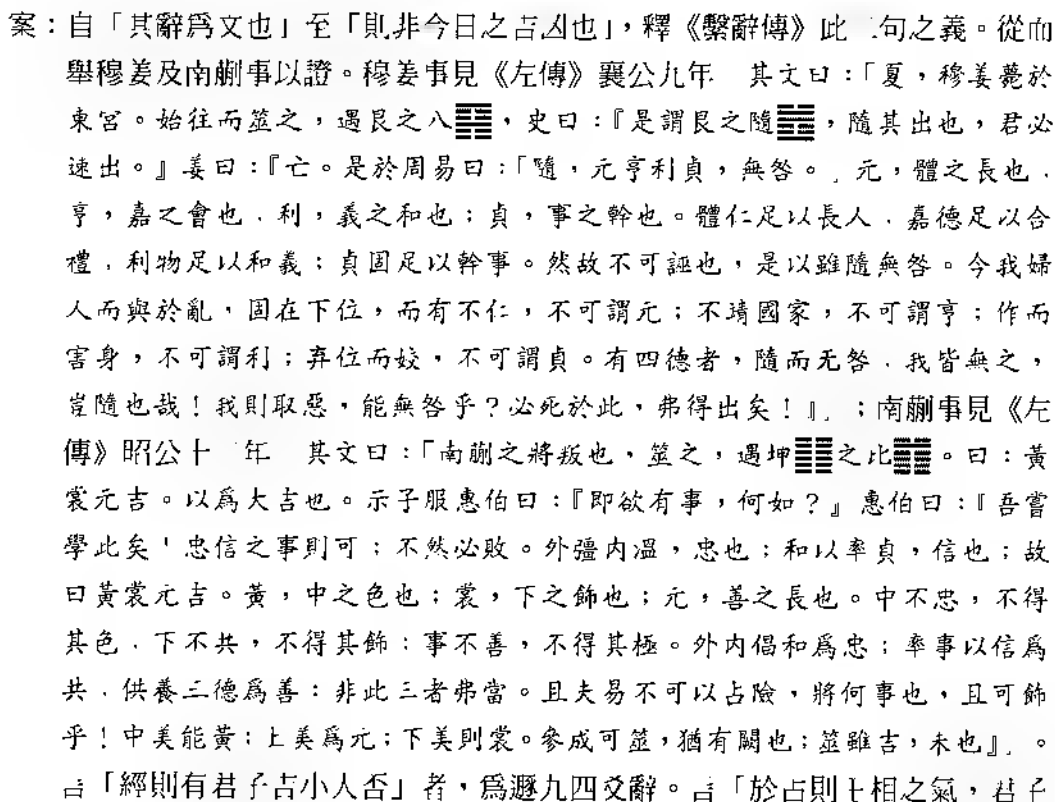 案：自「其辭爲文也」至「則非今日之吉凶也」，釋《繫辭傳》此二句之義。從而
舉穆姜及南蒯事以證。穆姜事見《左傳》襄公九年 其文曰：「夏，穆姜薨於
東宮。始往而筮之，遇艮之八䷳，史曰：『是謂艮之隨䷐，隨其出也，君必
速出。』姜曰：『亡。是於周易曰：「隨，元亨利貞，無咎。」元，體之長也．
亨，嘉之會也．利，義之和也；貞，事之幹也。體仁足以長人．嘉德足以合
禮．利物足以和義；貞固足以幹事。然故不可誣也，是以雖隨無咎。今我婦
人而與於亂，固在下位，而有不仁，不可謂元；不靖國家，不可謂亨；作而
害身，不可謂利；弃位而姣，不可謂貞。有四德者，隨而无咎．我皆無之，
豈隨也哉！我則取惡，能無咎乎？必死於此，弗得出矣！』」；南蒯事見《左
傳》昭公十 年 其文曰：「南蒯之將叛也，筮之，遇坤䷁之比䷇。曰：黃
裳元吉。以爲大吉也。示子服惠伯曰：『即欲有事，何如？』惠伯曰：『吾嘗
學此矣！忠信之事則可；不然必敗。外彊内溫，忠也；和以率貞，信也；故
曰黃裳元吉。黃，中之色也；裳，下之飾也；元，善之長也。中不忠，不得
其色．下不共，不得其飾；事不善，不得其極。外内倡和爲忠；率事以信爲
共．供養三德爲善；非此三者弗當。且夫易不可以占險，將何事也，且可飾
乎！中美能黃；上美爲元；下美則裳。參成可筮，猶有闕也；筮雖吉，未也』」。
言「經則有君子吉小人否」者，爲遯九四爻辭。言「於占則王相之氣，君子